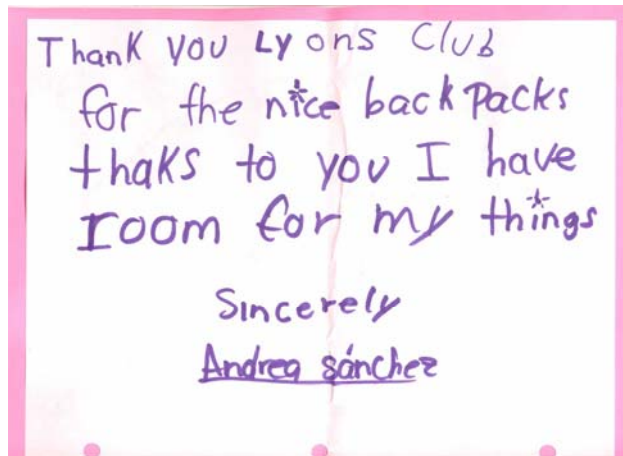 Thank you Lyons Club
for the nice backpacks
thaks to you I have
room for my things
Sincerely
Andrea sánchez